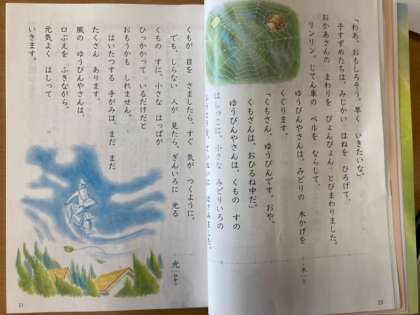 「わあ、おもしろそう。早く いきたいな。」
子すずめたちは、みじかい はねを ひろげて、
おかあさんの まわりを ぴょんぴょん とびまわりました。
リンリン。じてん車の ベルを ならして、
ゆうびんやさんは、みどりの 木かげを
くぐります。
「くもさん、ゆうびんです。おや、
くもさんは、おひるね中だ。」
ゆうびんやさんは、くもの すの
はしっこに、小さな みどりいろの
くもが 目を さましたら、すぐ 気が つくように。
でも、しらない 人が 見たら、ぎんいろに 光る
くもの すに、小さな はっぱが
ひっかかって いるだけだと
おもうかも しれません。
はいたつする 手がみは、まだ まだ
たくさん あります。
風の ゆうびんやさんは、
口ぶえを ふきながら、
元気よく はしって
いきます。
光